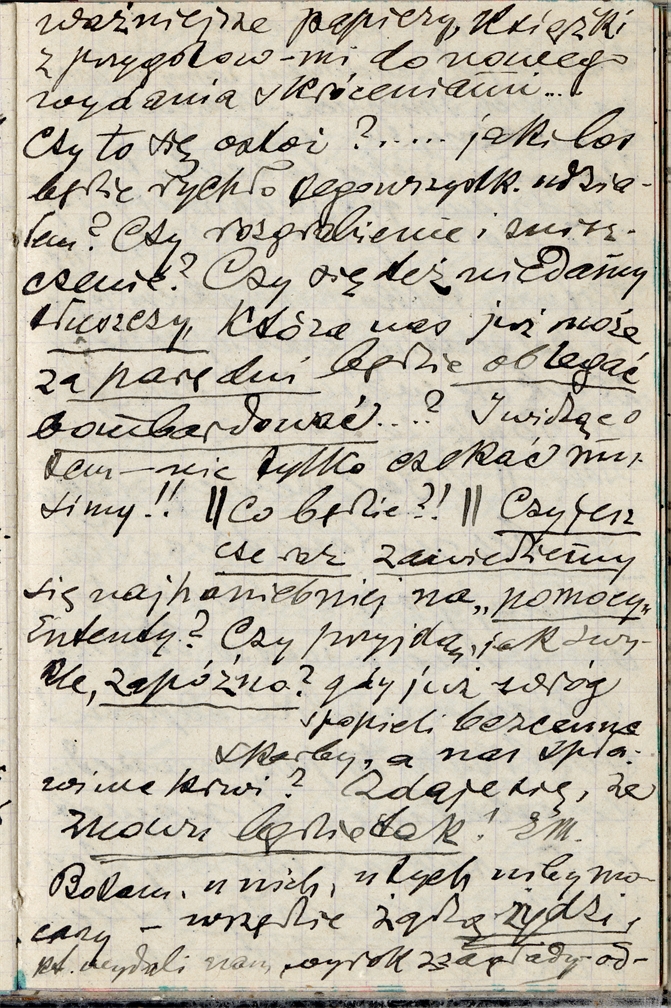 ważniejsze papiery, Książki
z przygotow-mi do nowego
wydania skróceniami...
Czy to się ostoi ?.... jaki los
będzie rychło tego wszystk. udzia-
łem? Czy rozgrabienie i znisz-
czenie? Czy się też nie damy
tłuszczy, Która nas już może
za parę dni będzie oblegać
bombardować...? I widząc o
tem—nic tylko czekać mu-
simy!! || Co będzie?! || Czy jesz
cze raz zawiedziemy
się najhaniebniej na „pomocy„
Ententy? Czy przyjdą, jak zwy-
kle, zapóźno? gdy już wróg
spopieli bezcenne
skarby, a nas
krwi? Zdaje się, że
znowu będzie tak!
Bo tam, u nich, u tych niby mo-
carzy – wszędzie żydzi,
kt. wydali nam wyrok zagłady od-